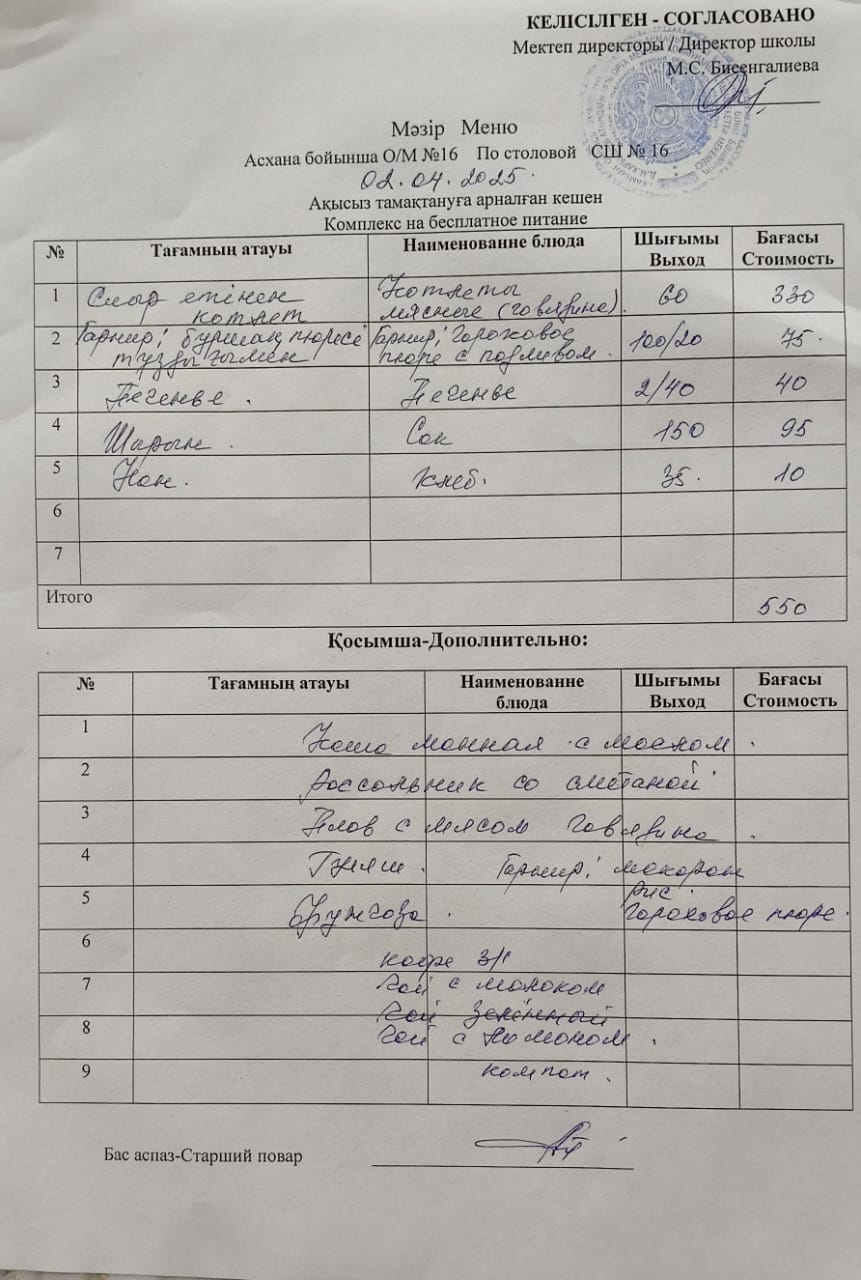 КЕЛІСІЛГЕН - СОГЛАСОВАНО
Мектеп директоры / Директор школы
М.С. Бисенгалиева
Мәзір Меню
Асхана бойынша О/М №16 По столовой СШ № 16
02.04.2025.
Ақысыз тамақтануға арналған кешен
Комплекс на бесплатное питание
№ Тағамның атауы Наименованне блюда Шығымы Выход Бағасы Стоимость
1 Сиыр етінен котлет Котлеты мясные (говядина). 60 330
2 Гарнир: бұршақ пюресе тұздығымен Гарнир: Гороховое пюре с подливом. 100/20 75.
3 Печенье. Печенье 2/40 40
4 Шырын. Сок 150 95
5 Нан. Хлеб. 35. 10
6
7
Итого 550
Қосымша-Дополнительно:
№ Тағамның атауы Наименованне блюда Шығымы Выход Бағасы Стоимость
1 Каша манная с маслом.
2 Рассольник со сметаной
3 Плов с мясом говядина.
4 Гуляш. Гарнир: макарон
рис.
5 гороховое пюре.
6 кофе 3/1
7 чай с молоком
чай зелённый
8 чай с лимоном.
9 компот.
Бас аспаз-Старший повар